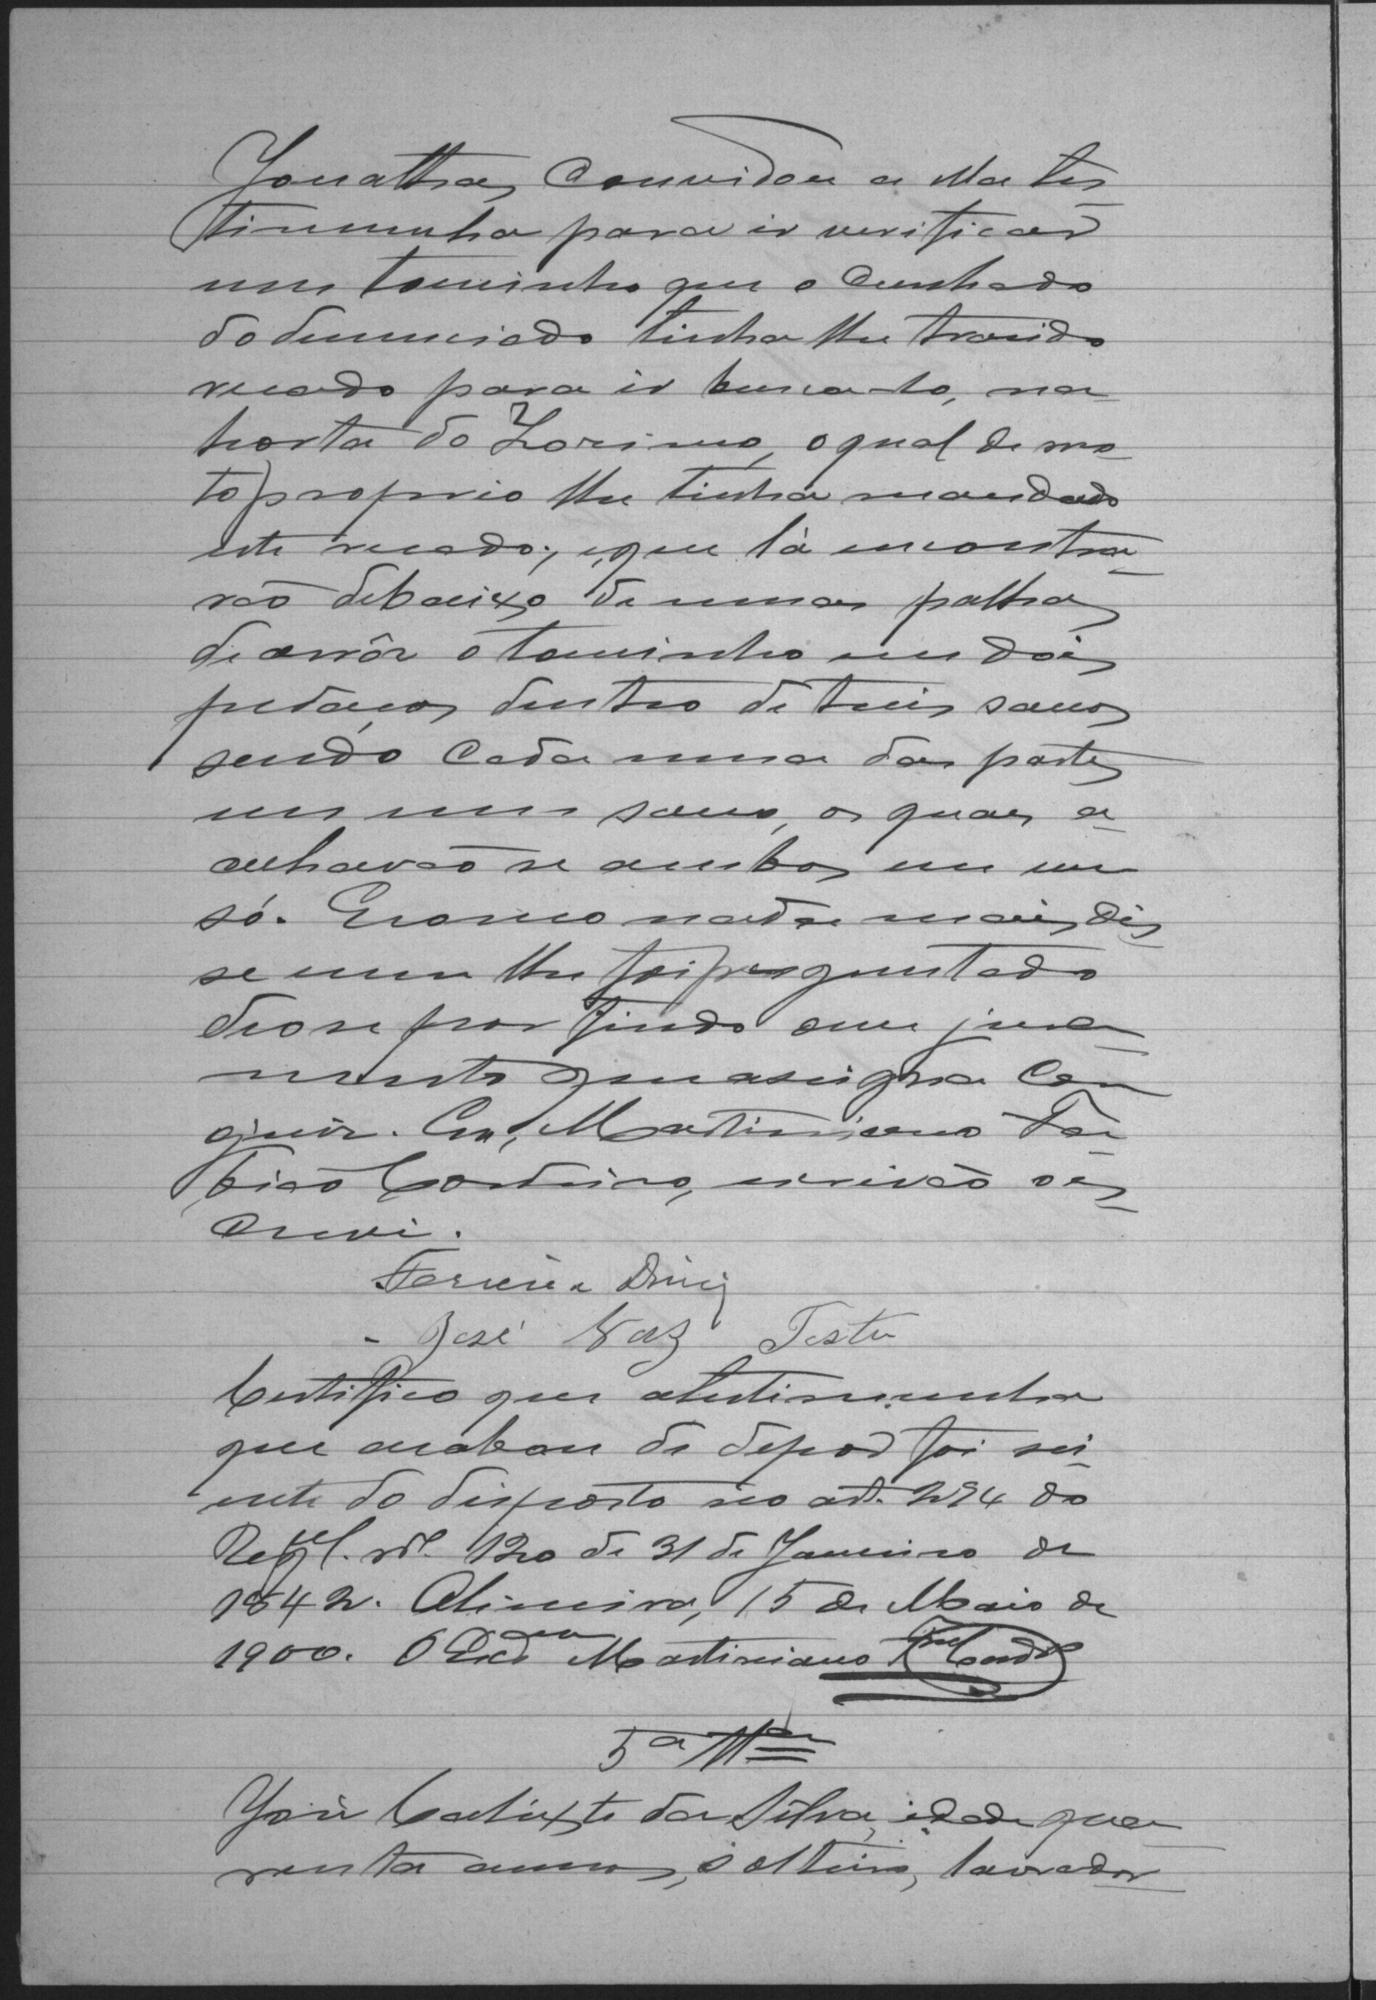 Jonathas, convidou a ella tes-
timunha para ir verificar
um toucinho que o cunhado
do denunciado tinha lhe trasido
recado para ir busca-lo, na
horta do Zorimo, o qual de mo-
to proprio lhe tinha mandado
este recado; e que lá encontra-
rão debaixo de umas palhas
de arrôz o toucinho em dois
pedaços dentro de treis saccos
sendo cada uma das partes
em um sacco, os quaes a-
chavão se ambos em um
só. E como nada mais dis-
se nem lhe foi preguntado
deo se por findo seu jura-
mento que assigna com
o juiz. Eu, Martiniano Fa-
bião Cordeiro, escrivão o es-
crevi.
Ferreira Diniz
José Vaz Teste
Certifico que a testimunha
que acabou de depor foi sci-
ente do disposto no art. 294 do
Regul. nº. 120 de 31 de Janeiro de
1842. Alimira, 15 de Maio de
1900. O Escram Martiniano Fael Cordº
5ª Ttª
José Calixto da Silva, idade qua-
renta annos, solteiro, lavrador